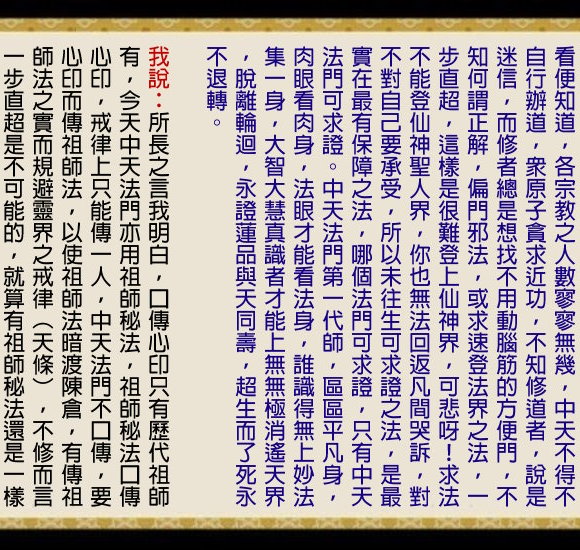 看便知道，各宗教之人數寥寥無幾，中天不得不
自行辦道，眾原子貪求近功，不知修道者，說是
迷信，而修者總是想找不用動腦筋的方便門，不
知何謂正解，偏門邪法，或求速登法界之法，一
步直超，這樣是很難登上仙神界，可悲呀！求法
不能登仙神聖人界，你也無法回返凡間哭訴，對
不對自己要承受，所以未往生可求證之法，是最
實在最有保障之法，哪個法門可求證，只有中天
法門可求證。中天法門第一代師，區區平凡身，
肉眼看肉身，法眼才能看法身，誰識得無上妙法
集一身，大智大慧真識者才能上無無極消遙天界
，脫離輪迴，永證蓮品與天同壽，超生而了死永
不退轉。
我說：所長之言我明白，口傳心印只有歷代祖師
有，今天中天法門亦用祖師秘法，祖師秘法口傳
心印，戒律上只能傳一人，中天法門不口傳，要
心印而傳祖師法，以使祖師法暗渡陳倉，有傳祖
師法之實而規避靈界之戒律（天條），不修而言
一步直超是不可能的，就算有祖師秘法還是一樣